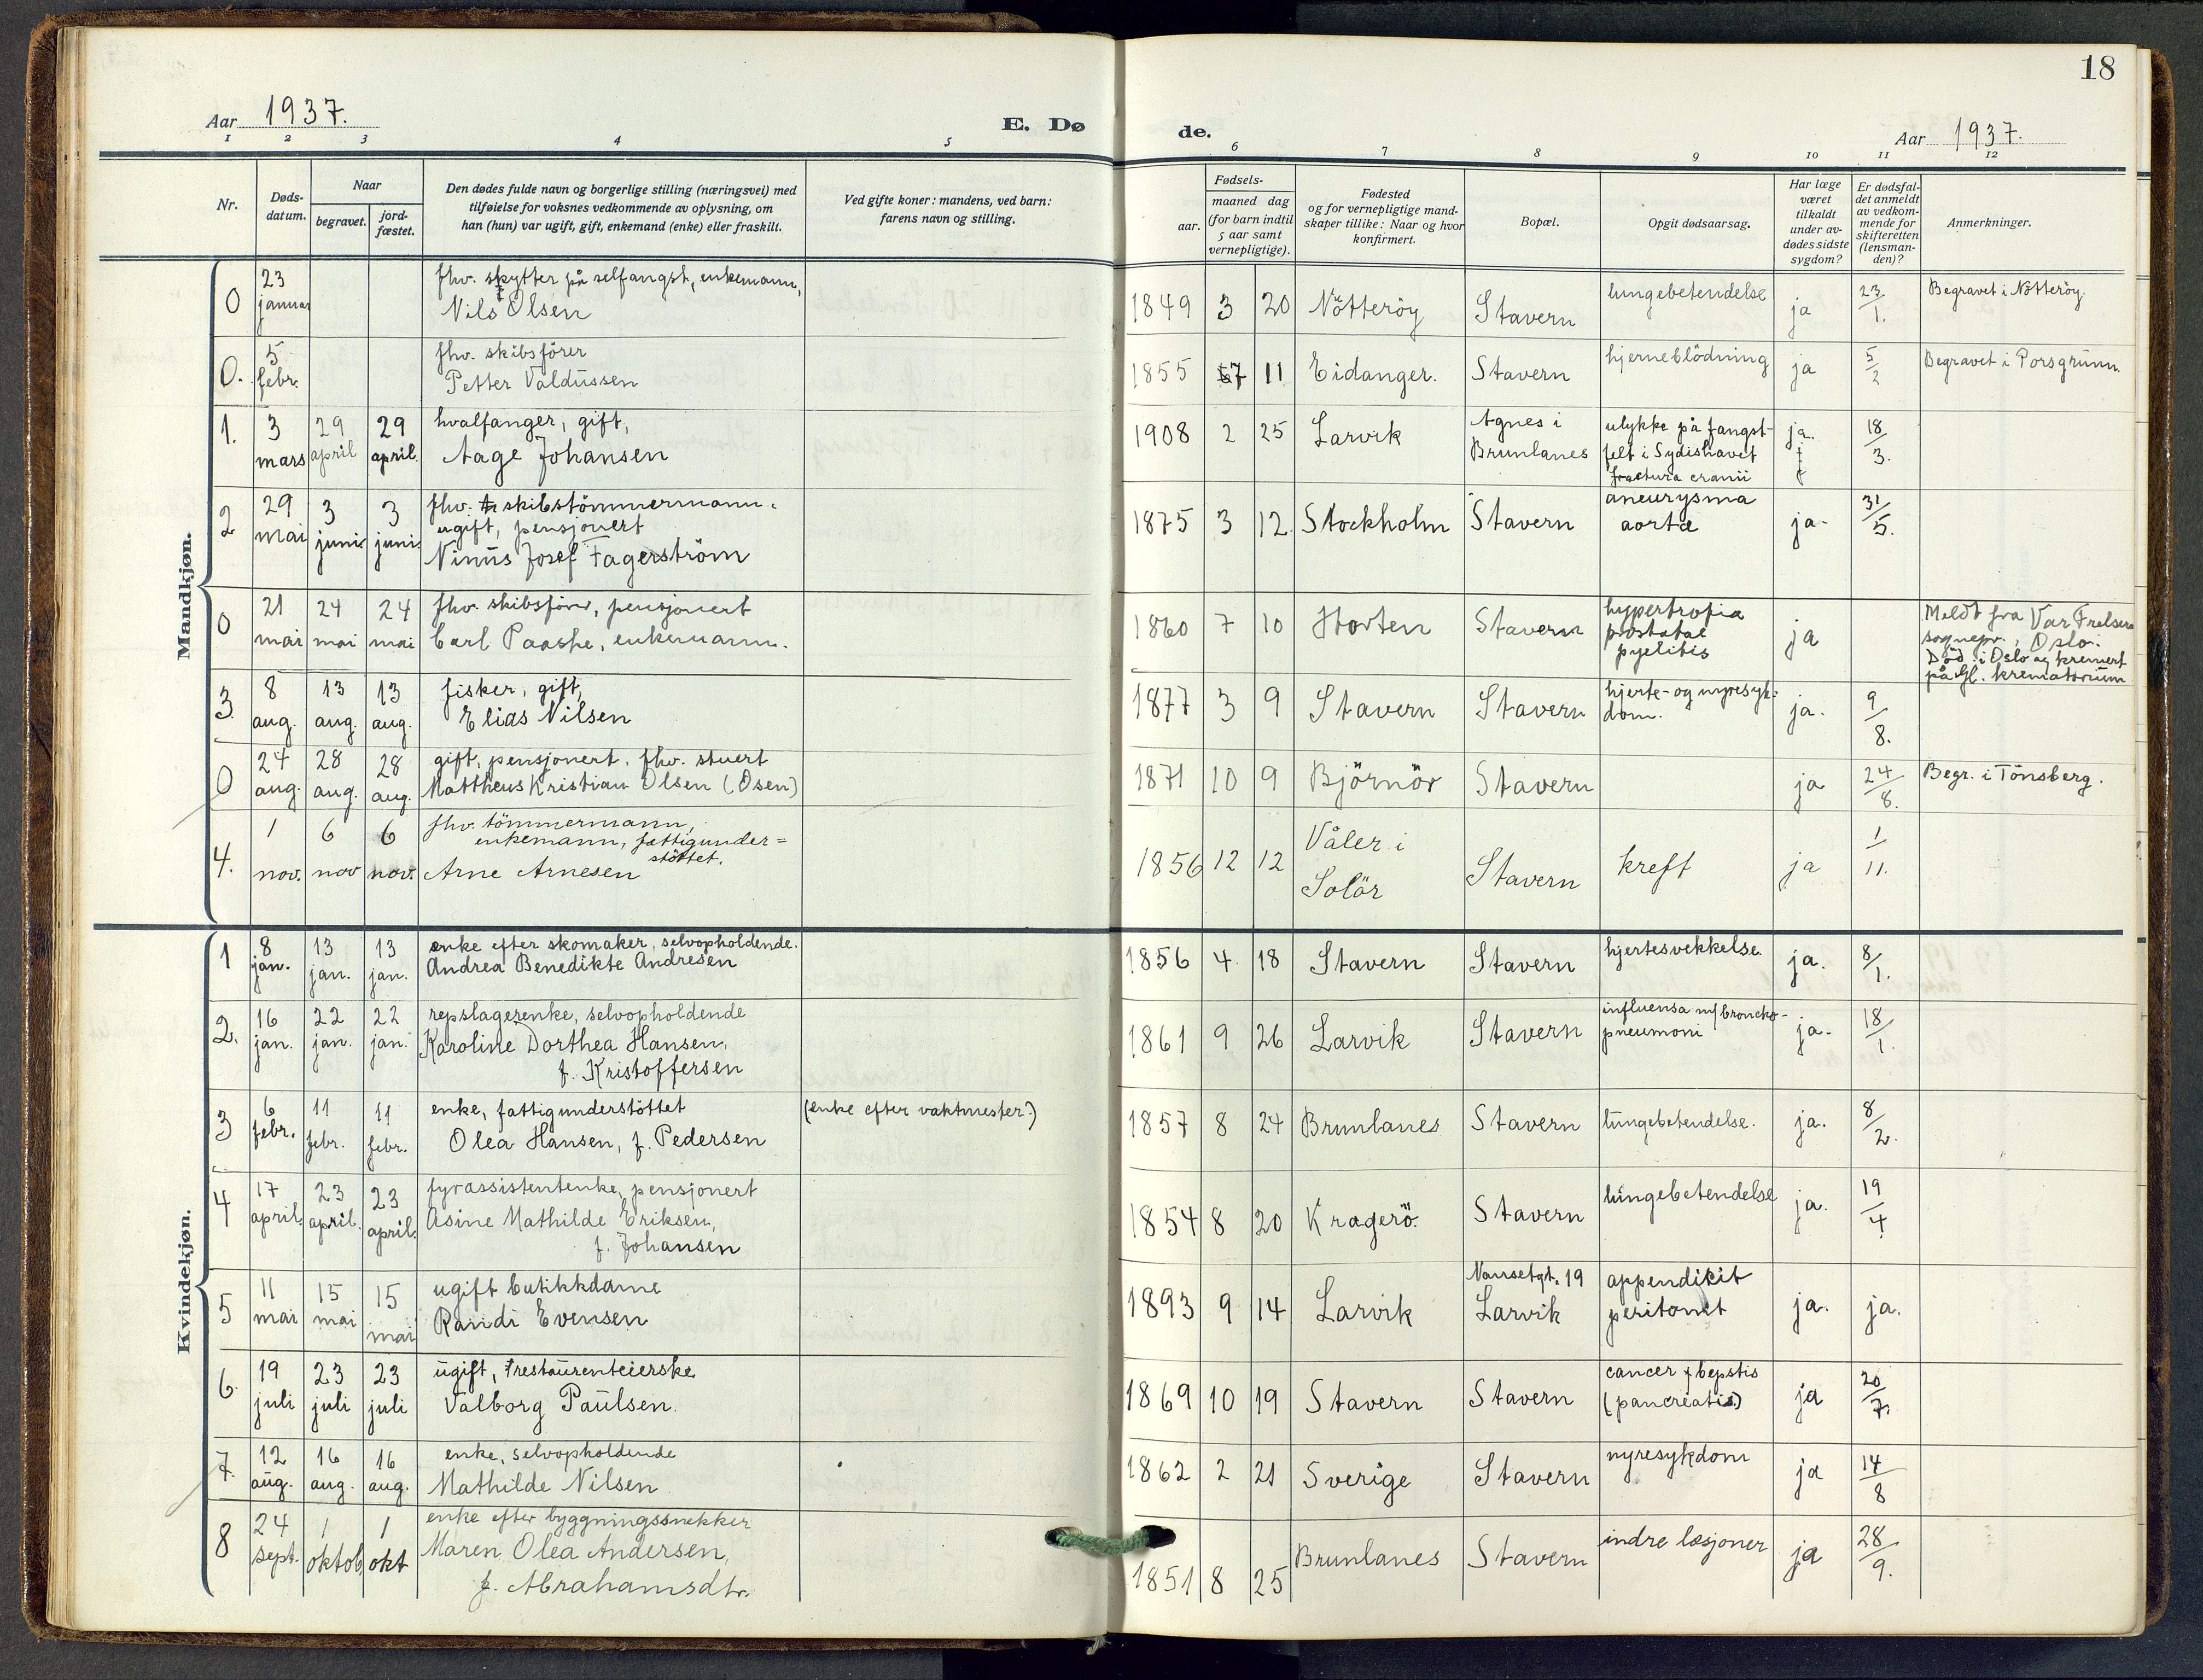 18
Aar 1937.
E. Dø
de.
Aar 1937.
1 2 3 4 5 6 7 8 9 10 11 12
Nr.
Døds-
datum.
Naar
begravet.
jord-
fæstet.
Den dødes fulde navn og borgerlige stilling (næringsvei) med
tilføielse for voksnes vedkommende av oplysning, om
han (hun) var ugift, gift, enkemand (enke) eller fraskilt.
Ved gifte koner: mandens, ved barn:
farens navn og stilling.
Fødsels-
aar. maaned dag
(for barn indtil
5 aar samt
vernepligtige).
Fødested
og for vernepligtige mand-
skaper tillike: Naar og hvor
konfirmert.
Bopæl.
Opgit dødsaarsag.
Har læge
været
tilkaldt
under av-
dødes sidste
sygdom?
Er dødsfal-
det anmeldt
av vedkom-
mende for
skifteretten
(lensman-
den)?
Anmerkninger.
Mandkjøn.
0 23 januar
fhv. skytter på selfangst, enkemann,
Nils Olsen
1849 3 20 Nötteröy Stavern lungebetendelse ja 23/1. Begravet i Nötteröy.
0. 5 febr.
fhv. skibsförer
Petter Valdussen
1855 7 11 Eidanger. Stavern hjerneblödning ja 5/2 Begravet i Porsgrunn.
1. 3 mars 29 april 29 april.
hvalfanger, gift,
Aage Johansen
1908 2 25 Larvik Agnes i
Brunlanes
ulykke på fangst-
felt i Sydishavet
fractura cranii
ja. 18/3.
2 29 mai 3 juni 3 juni.
fhv. skibstömmermann.
ugift, pensjonert
Ninus Josef Fagerström
1875 3 12. Stockholm Stavern aneurysma
aortæ
ja- 31/5.
0 21 mai 24 mai 24 mai
fhv. skibsförer, pensjonert
Carl Paashe, enkemann.
1860 7 10 Horten Stavern hypertrofia
prostatae
pyelitis
ja
Meldt fra Vår Frelsers
sognepr., Oslo.
Död i Oslo og kremert
på gl. krematorium
3. 8 aug. 13 aug. 13 aug.
fisker, gift,
Elias Nilsen
1877 3 9 Stavern Stavern hjerte- og nyresyk-
dom.
ja. 9/8.
0 24 aug. 28 aug. 28 aug.
gift, pensjonert, fhv. stuert
Mattheus Kristian Olsen (Osen)
1871 10 9 Björnör Stavern ja 24/8. Begr. i Tönsberg.
4. 1 nov. 6 nov 6 nov.
fhv. tömmermann,
enkemann, fattigunder=
støttet.
Arne Arnesen
1856 12 12 Våler i
Solör
Stavern kreft ja 1/11.
Kvindekjøn.
1 8 jan. 13 jan. 13 jan.
enke efter skomaker, selvopholdende.
Andrea Benedikte Andresen
1856 4 18 Stavern Stavern hjertesvekkelse. ja. 8/1.
2. 16 jan. 22 jan. 22 jan.
repslagerenke, selvopholdende
Karoline Dorthea Hansen,
f. Kristoffersen
1861 9 26 Larvik Stavern influensa m/broncko-
pneumoni
ja- 18/1.
3 6 febr. 11 febr. 11 febr.
enke, fattigunderstöttet
Olea Hansen, f. Pedersen
(enke efter vaktmester.)
1857 8 24 Brunlanes Stavern lungebetendelse. ja. 8/2.
4 17 april. 23 april. 23 april.
fyrassistentenke, pensjonert
Asine Mathilde Eriksen,
f. Johansen
1854 8 20 Kragerö. Stavern lungebetendelse ja. 19/4
5 11 mai 15 mai 15 mai
ugift butikkdame
Randi Evensen
1893 9 14 Larvik Nansetgt. 19
Larvik
appendikit
peritonit
ja. ja.
6. 19 juli 23 juli 23 juli
ugift, restaurenteierske
Valborg Paulsen.
1869 10 19 Stavern Stavern cancer
(pancreatis)
ja 20/7.
7. 12 aug. 16 aug. 16 aug.
enke, selvopholdende
Mathilde Nilsen
1862 2 21 Sverige Stavern nyresykdom ja 14/8
8 24 sept. 1 oktob 1 okt
enke efter byggningssnekker
Maren Olea Andersen,
f. Abrahamsdtr.
1851 8 25 Brunlanes Stavern indre læsjoner ja 28/9.